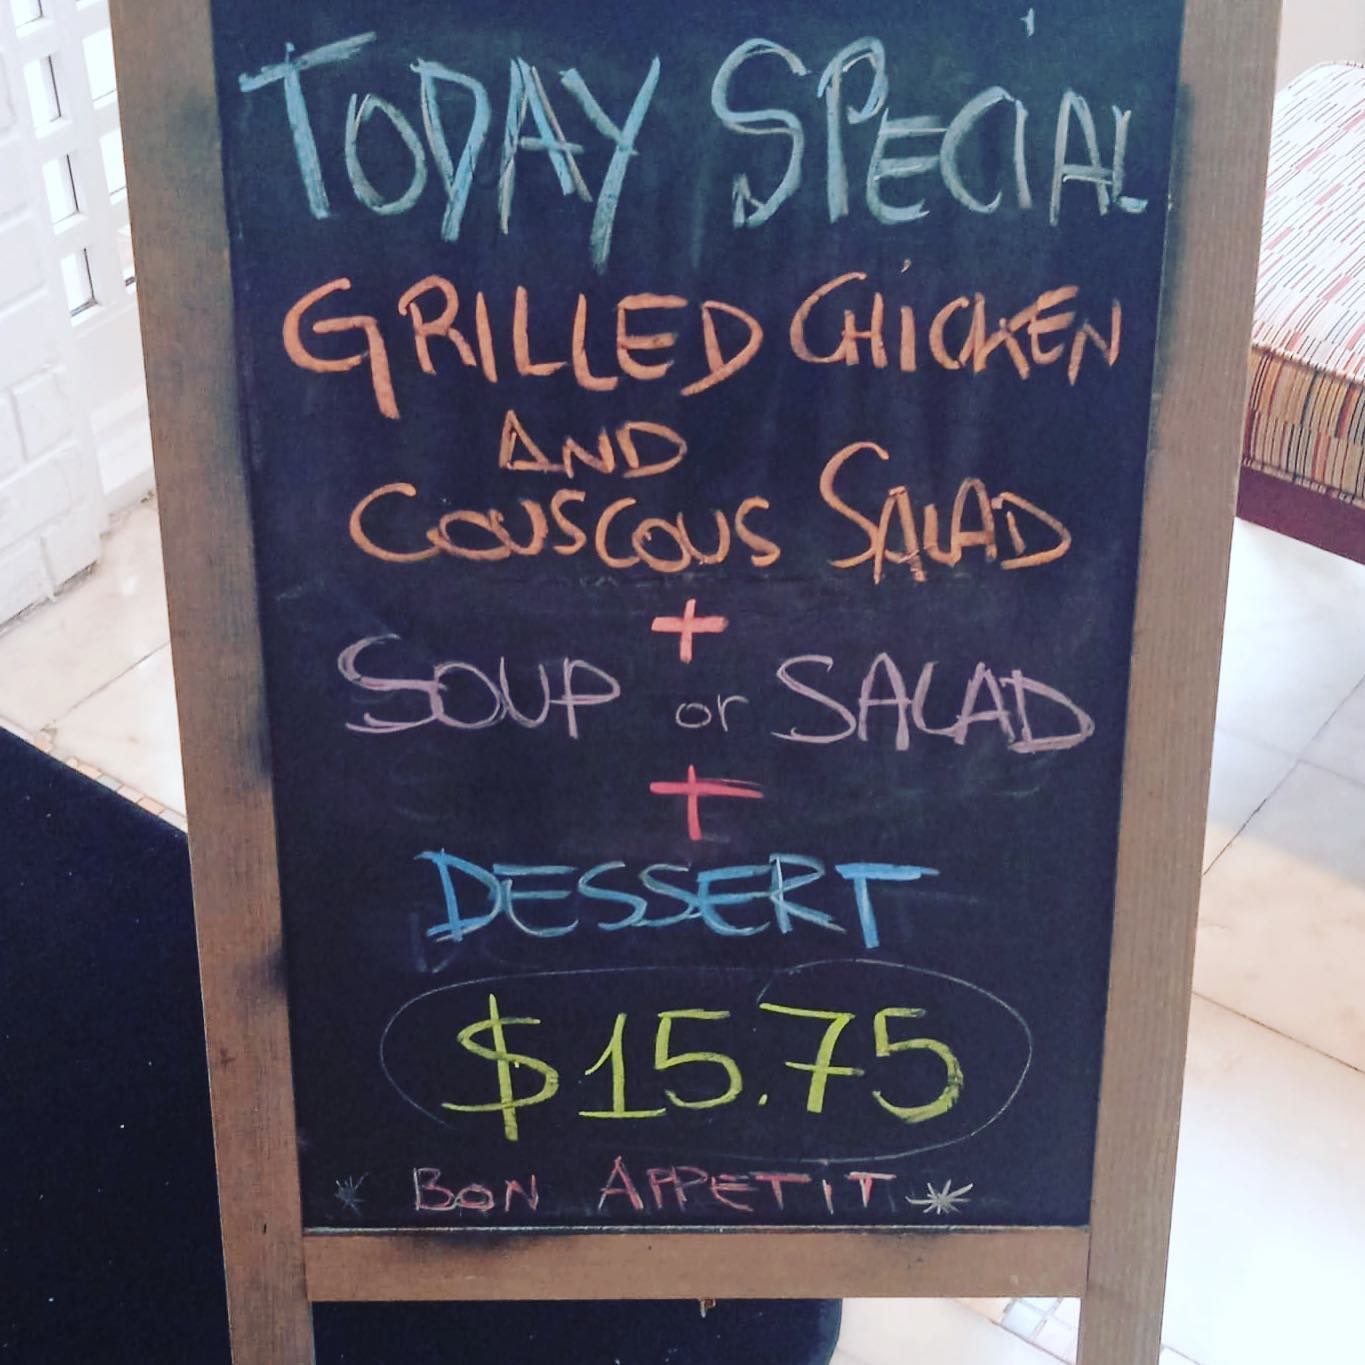 TODAY SPECIAL
GRILLED CHiCKEN
AND
COUSCOUS SALAD
+
SOUP or SALAD
+
DESSERT
$15.75
* BON APPETiT *